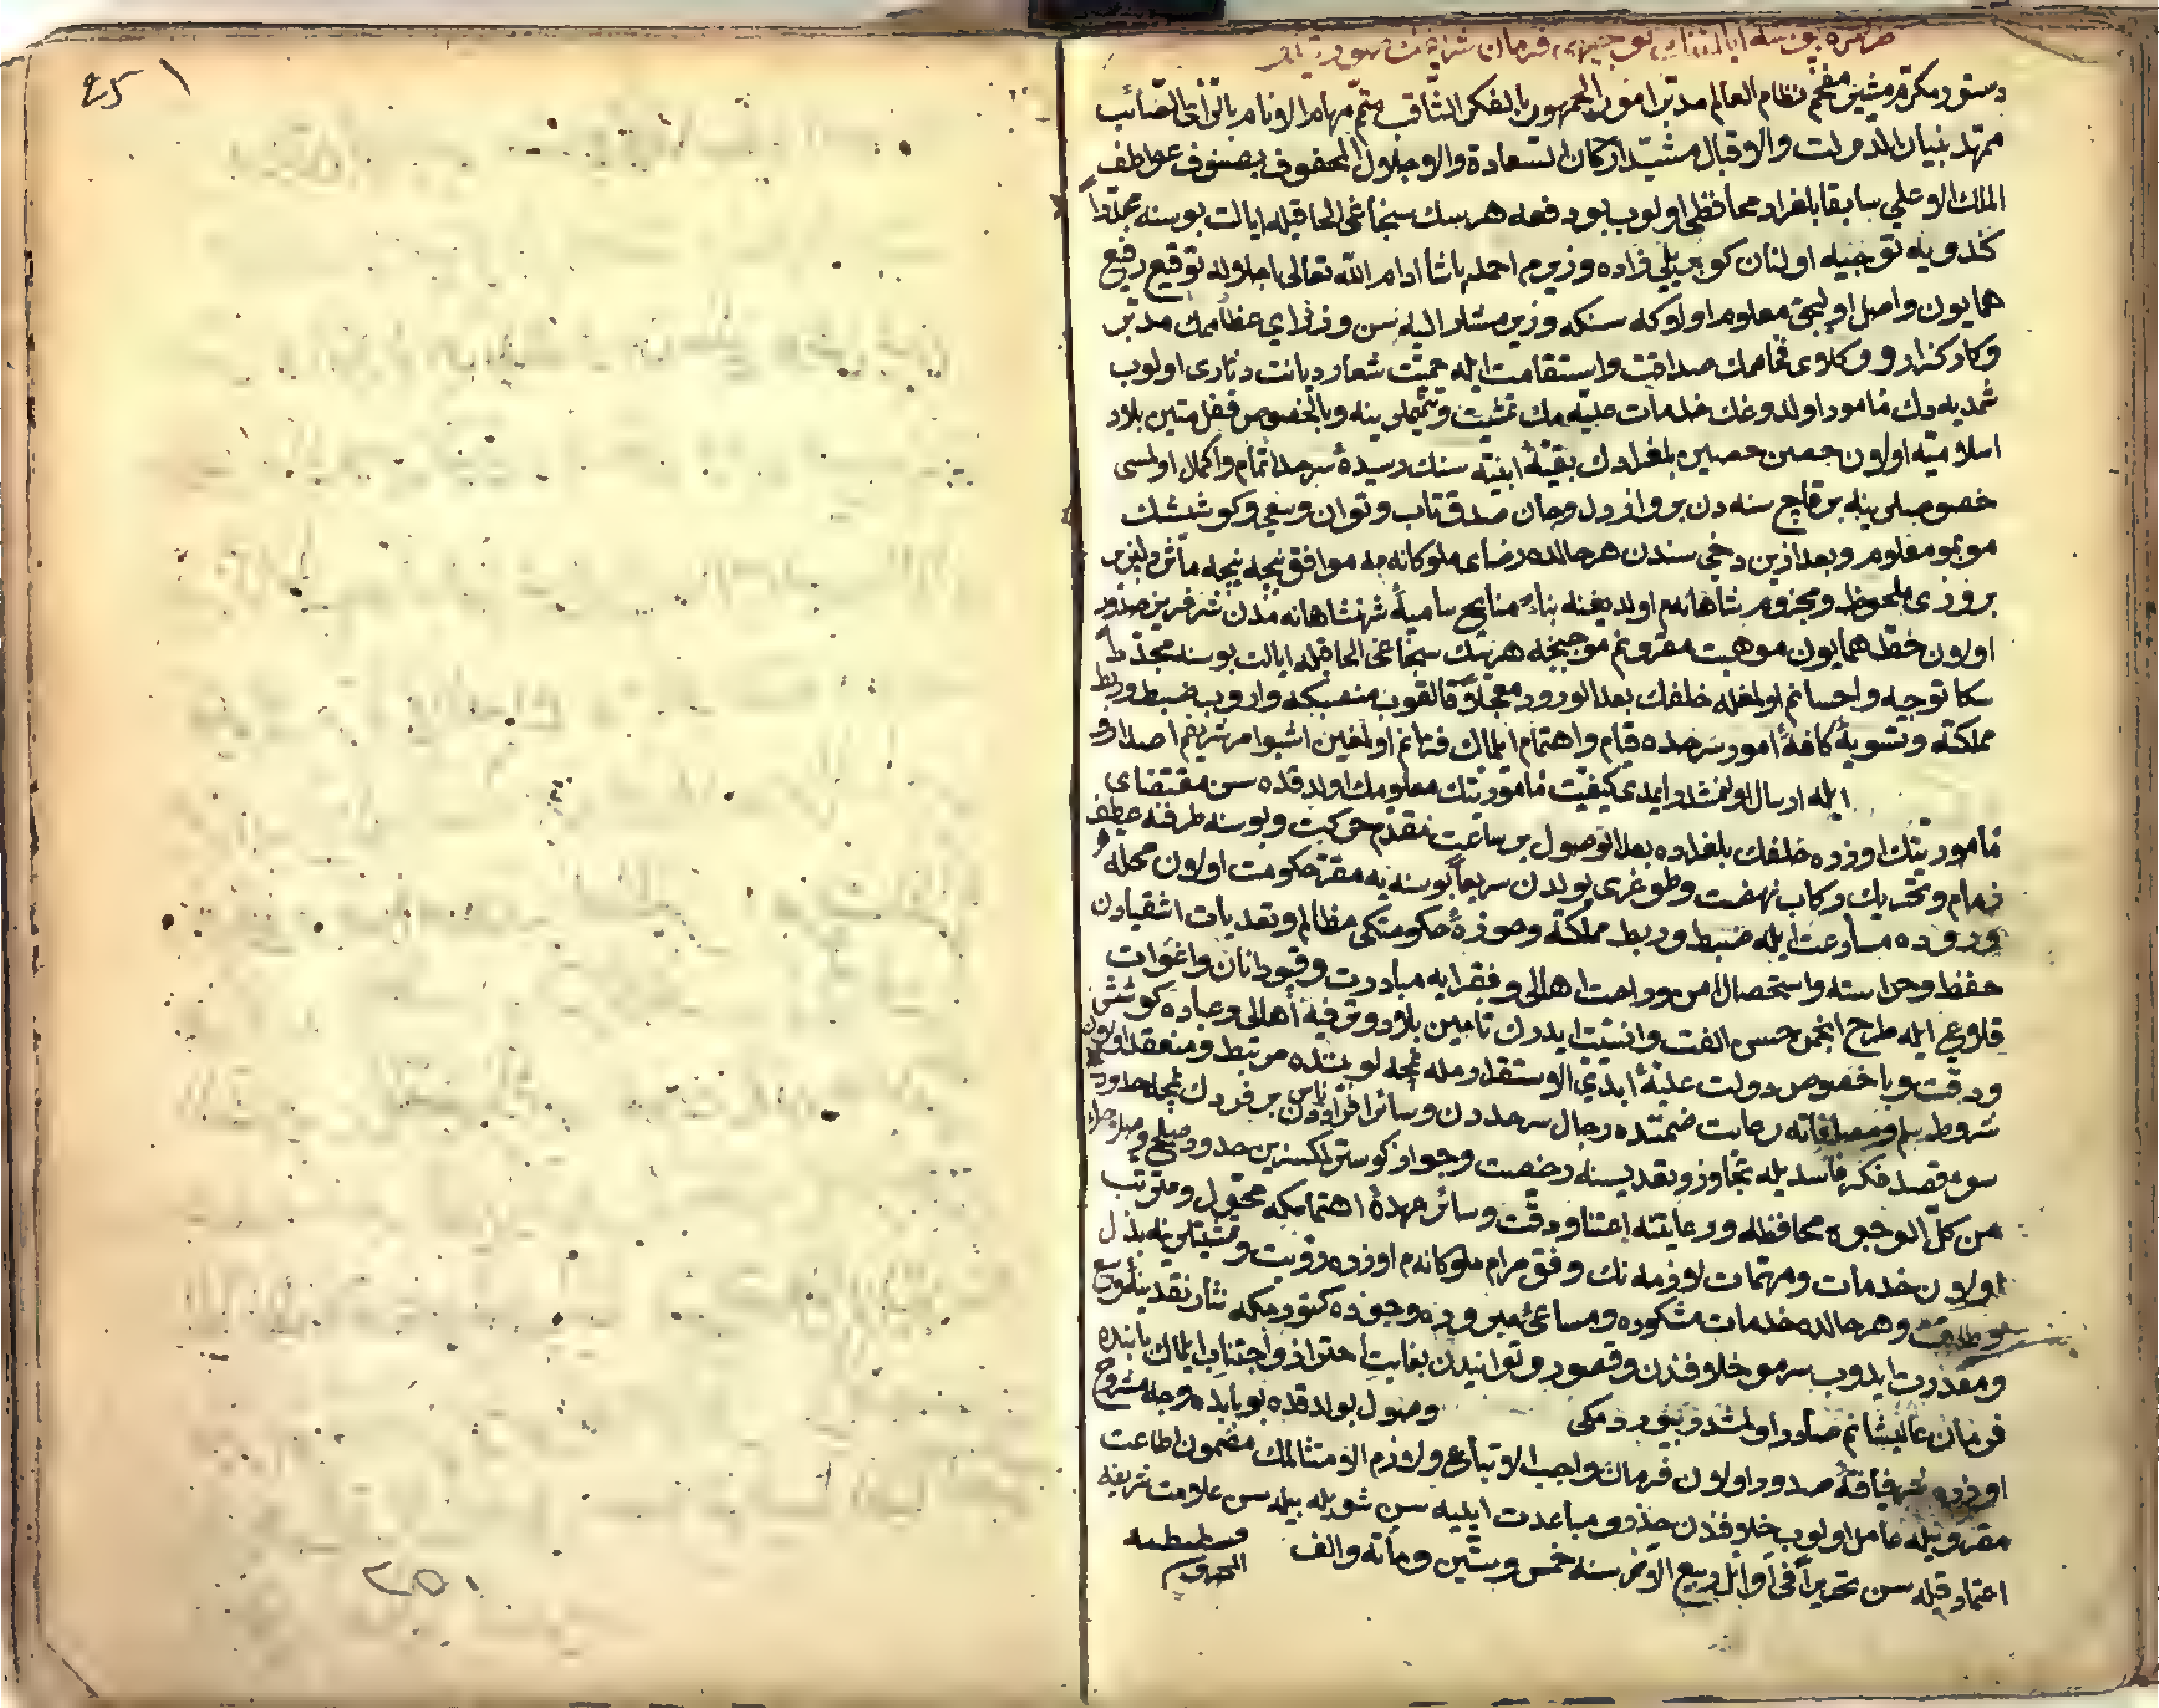 دستور مكرم مشير مفخم نظام العالم مدبر امور الجمهور بالفكر الثاقب متمم مهام الانام بالرأى الصائب
ممهد بنيان الدولت والاقبال مشيد اركان السعادة والاجلال المحفوف بصنوف عواطف
الملك الاعلى سابقا بلغراد محافظى اولوب بو دفعه هرسك سنجاغى الحاقيله ايالت بوسنه مجددا
كندويه توجيه اولنان كوپريلى زاده وزيرم احمد پاشا ادام الله تعالى اجلاله توقيع رفيع
همايون واصل اوليجق معلوم اولاكه سنكه وزير مشار اليه سن وزراى عظاممك مدبر
وكاركذار و وكلاى فخاممك صداقت واستقامت ايله حميت شعار ديانت دثارى اولوب
شمديه دك مامور اولدوغك خدمات عليه مك تمشيت وتتميملرينه وبالخصوص قفل متين بلاد
اسلاميه اولان حصن حصين بلغرادك بقيۀ ابنيه سنك رسيدۀ سرحد اتمام واكمال اولمسى
خصوصلرينه بر قاچ سنه دن برو از دل وجان صدق تاب وتوان وسعى وكوششك
موبمو معلوم وبعد ازين دخى سندن هر حالده رضاى ملوكانه مه موافق نيجه نيجه مآثر دلپذير
بروزى ملحوظ ومجزوم شاهانه م اولديغنه بناء منايح ساميۀ شهنشاهانه مدن شرفريز صدور
اولان خط همايون موهبت مقرونم موجبنجه هرسك سنجاغى الحاقيله ايالت بوسنه مجددا
سكا توجيه واحسانم اولمغله خلفك بعد الورود معجلا قالقوب منصبكه واروب ضبط وربط
مملكته وتسويۀ كافۀ امور سرحده قيام واهتمام ايلمك فرمانم اولمغين اشبو امر شريفم اصدار و
ايله ارسال اولنمشدر ايمدى كيفيت ماموريتك معلومك اولدقده سن مقتضاى
ماموريتك اوزره خلفك بلغراده بعد الوصول بر ساعت مقدم حركت وبوسنه طرفنه عطف
زمام وتحريك ركاب نهضت وطوغرى يولدن سريعا بوسنه يه مقر حكومت اولان محله
وروده مسارعت ايله ضبط وربط مملكته وحوزۀ حكومتكى مظالم وتعديات اشقيادن
حفظ وحراسته واستحصال امن وراحت اهالى وفقرايه مبادرت وقپودانان واغوات
قلاع ايله طرح انجمن حسن الفت وانسيت ايدرك تامين بلاد وترفيه اهالى وعباده كوشش
ودقت وبا خصوص دولت عليۀ ابدى الاستقرارمله نمچه لو بيننده مرتبط ومنعقد اولان
شروط سلم ومصافاته رعايت ضمننده رجال سرحددن وسائر افراد ناسدن بر فردك نمچه حدودينه
سوء قصد فكر فاسديله تجاوز وتعديسنه رخصت وجواز كوسترلمكسزين حدود صلح وصلاح
من كل الوجوه محافظه ورعايتنه اعتنا ودقت وسائر عهدۀ اهتمامكه محول ومترتب
اولان خدمات ومهمات لازمه نك وفق مرام ملوكانه م اوزره رؤيت وتمشيتلرينه بذل
وطاقت وهر حالده خدمات مشكوره ومساعئ مبروره وجوده كتورمكه نثار نقدينۀ وسع
ومقدرت ايدوب سرمو خلافندن وقصور وتوانيدن بغايت احتراز واجتناب ايلمك بابنده
فرمان عاليشانم صادر اولمشدر بيوردمكى وصول بولدقده بو بابده وجه مشروح
اوزره شرفيافتۀ صدور اولان فرمان واجب الاتباع ولازم الامتثالمك مضمون اطاعت
مقرونيله عامل اولوب خلافندن حذر ومباعدت ايليه سن شويله بيله سن علامت شريفه
اعتماد قيله سن تحريرا فى اوائل ربيع الاخر سنه خمس وستين ومائة والف
قسطنطنيه
المحروسه
٢٥١